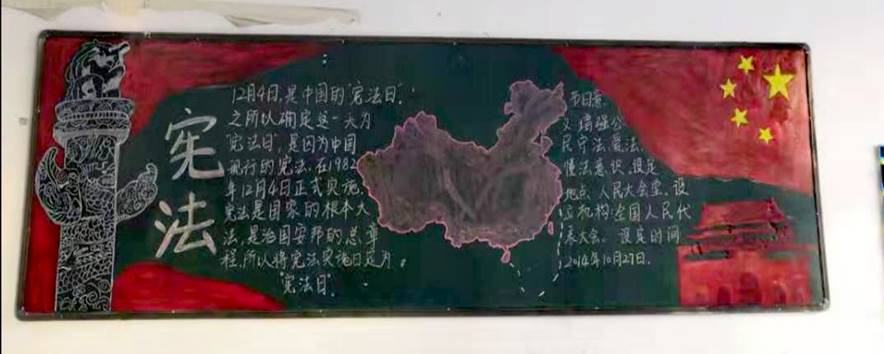 宪法
12月4日,是中国的"宪法日".
之所以确定这一天为
"宪法日",是因为中国
现行的宪法,在1982
年12月4日正式实施.
宪法是国家的根本大
法,是治国安邦的总章
程,所以将宪法实施日定为
"宪法日".
节日意
义 增强公
民守法宪法.
懂法意识.设定
地点 人民大会堂.设
立机构:全国人民代
表大会. 设定时间
2014年10月27日.